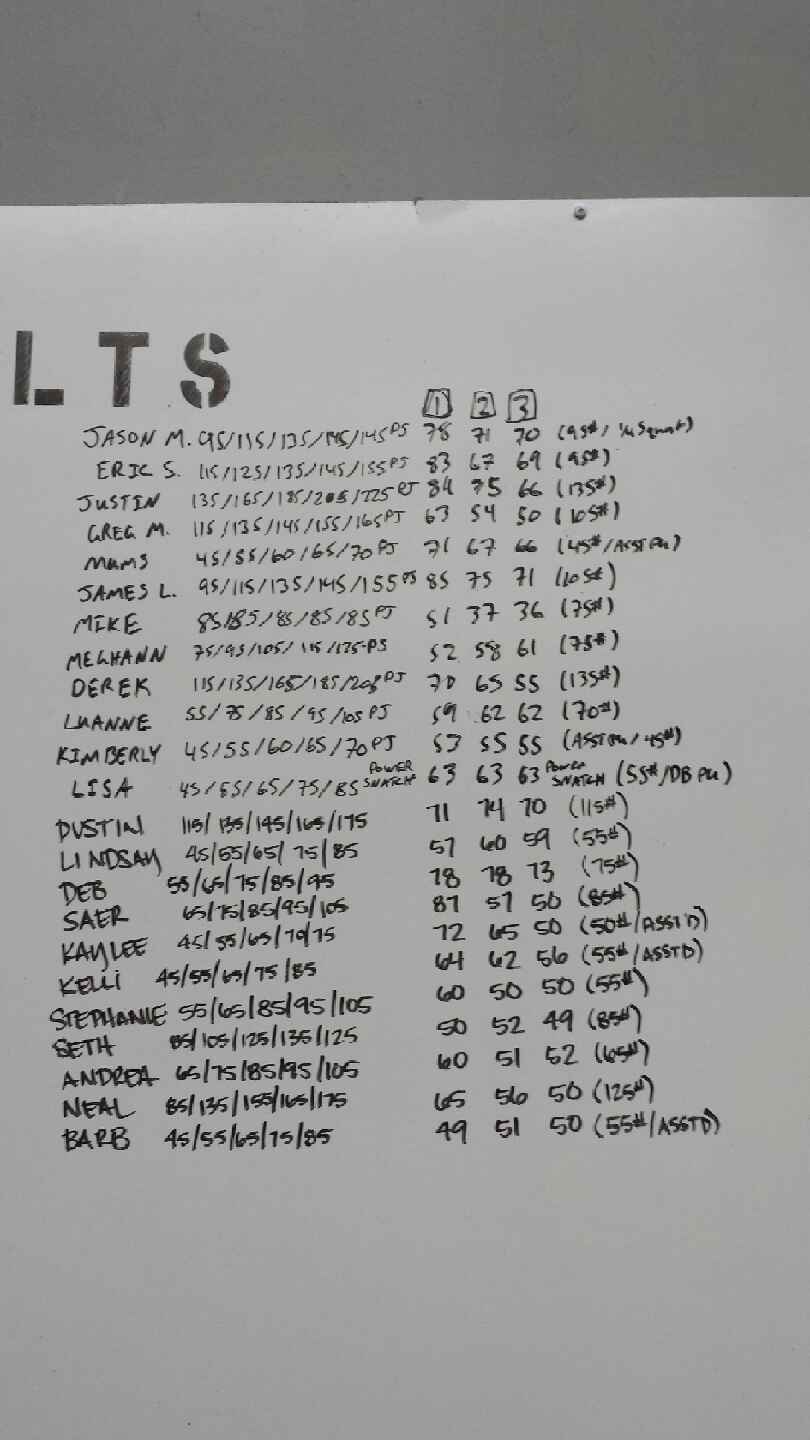 LTS
1 2 3
JASON M. 95/115/135/145/145 PS 78 71 70 (95#/
ERIC S. 115/125/135/145/155 PJ 83 67 69 (95#)
JUSTIN 135/165/185/205/225 PJ 84 75 66 (135#)
GREG M. 115/135/145/155/165 PJ 63 54 50 (105#)
MUMS 45/55/60/65/70 PJ 71 67 66 (45#/ASST PU)
JAMES L. 95/115/135/145/155 PS 85 75 71 (105#)
MIKE 85/85/85/85/85 PJ 51 37 36 (75#)
MEGHANN 75/95/105/115/125 PS 52 58 61 (75#)
DEREK 115/135/165/185/205 PJ 70 65 55 (135#)
LUANNE 55/75/85/95/105 PJ 59 62 62 (70#)
KIMBERLY 45/55/60/65/70 PJ 53 55 55 (ASST PU/45#)
LISA 45/55/65/75/85 POWER SNATCH 63 63 63 POWER SNATCH (55#/DB PU)
DUSTIN 115/135/145/165/175 71 74 70 (115#)
LINDSAY 45/55/65/75/85 57 60 59 (55#)
DEB 55/65/75/85/95 78 78 73 (75#)
SAER 65/75/85/95/105 87 57 50 (85#)
KAYLEE 45/55/65/70/75 72 65 50 (50#/ASST'D)
KELLI 45/55/65/75/85 64 62 56 (55#/ASSTD)
STEPHANIE 55/65/85/95/105 60 50 50 (55#)
SETH 85/105/125/135/125 50 52 49 (85#)
ANDREA 65/75/85/95/105 60 51 52 (65#)
NEAL 85/135/155/165/175 65 56 50 (125#)
BARB 45/55/65/75/85 49 51 50 (55#/ASSTD)